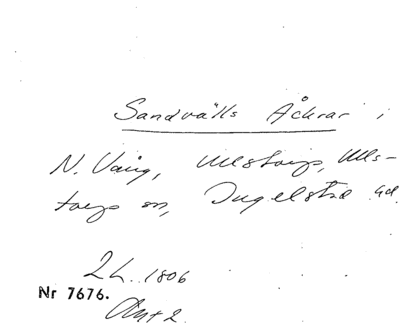 Sandvålls Åkrar i
N. Vång, Ullstorps, Ulls-
torps sn, Ingelstad hd.
2 L. 1806
Nr 7676.
Akt 2.